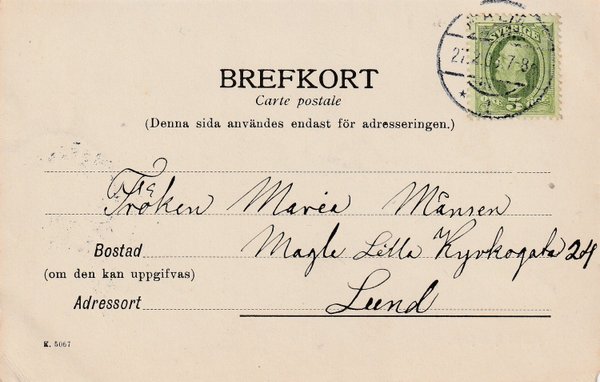 SVERIGE
5
BREFKORT
Carte postale
(Denna sida användes endast för adresseringen.)
Fröken Maria Månsen
Bostad Magle Lilla Kyrkogata 24
(om den kan uppgifvas)
Adressort Lund
K. 5067